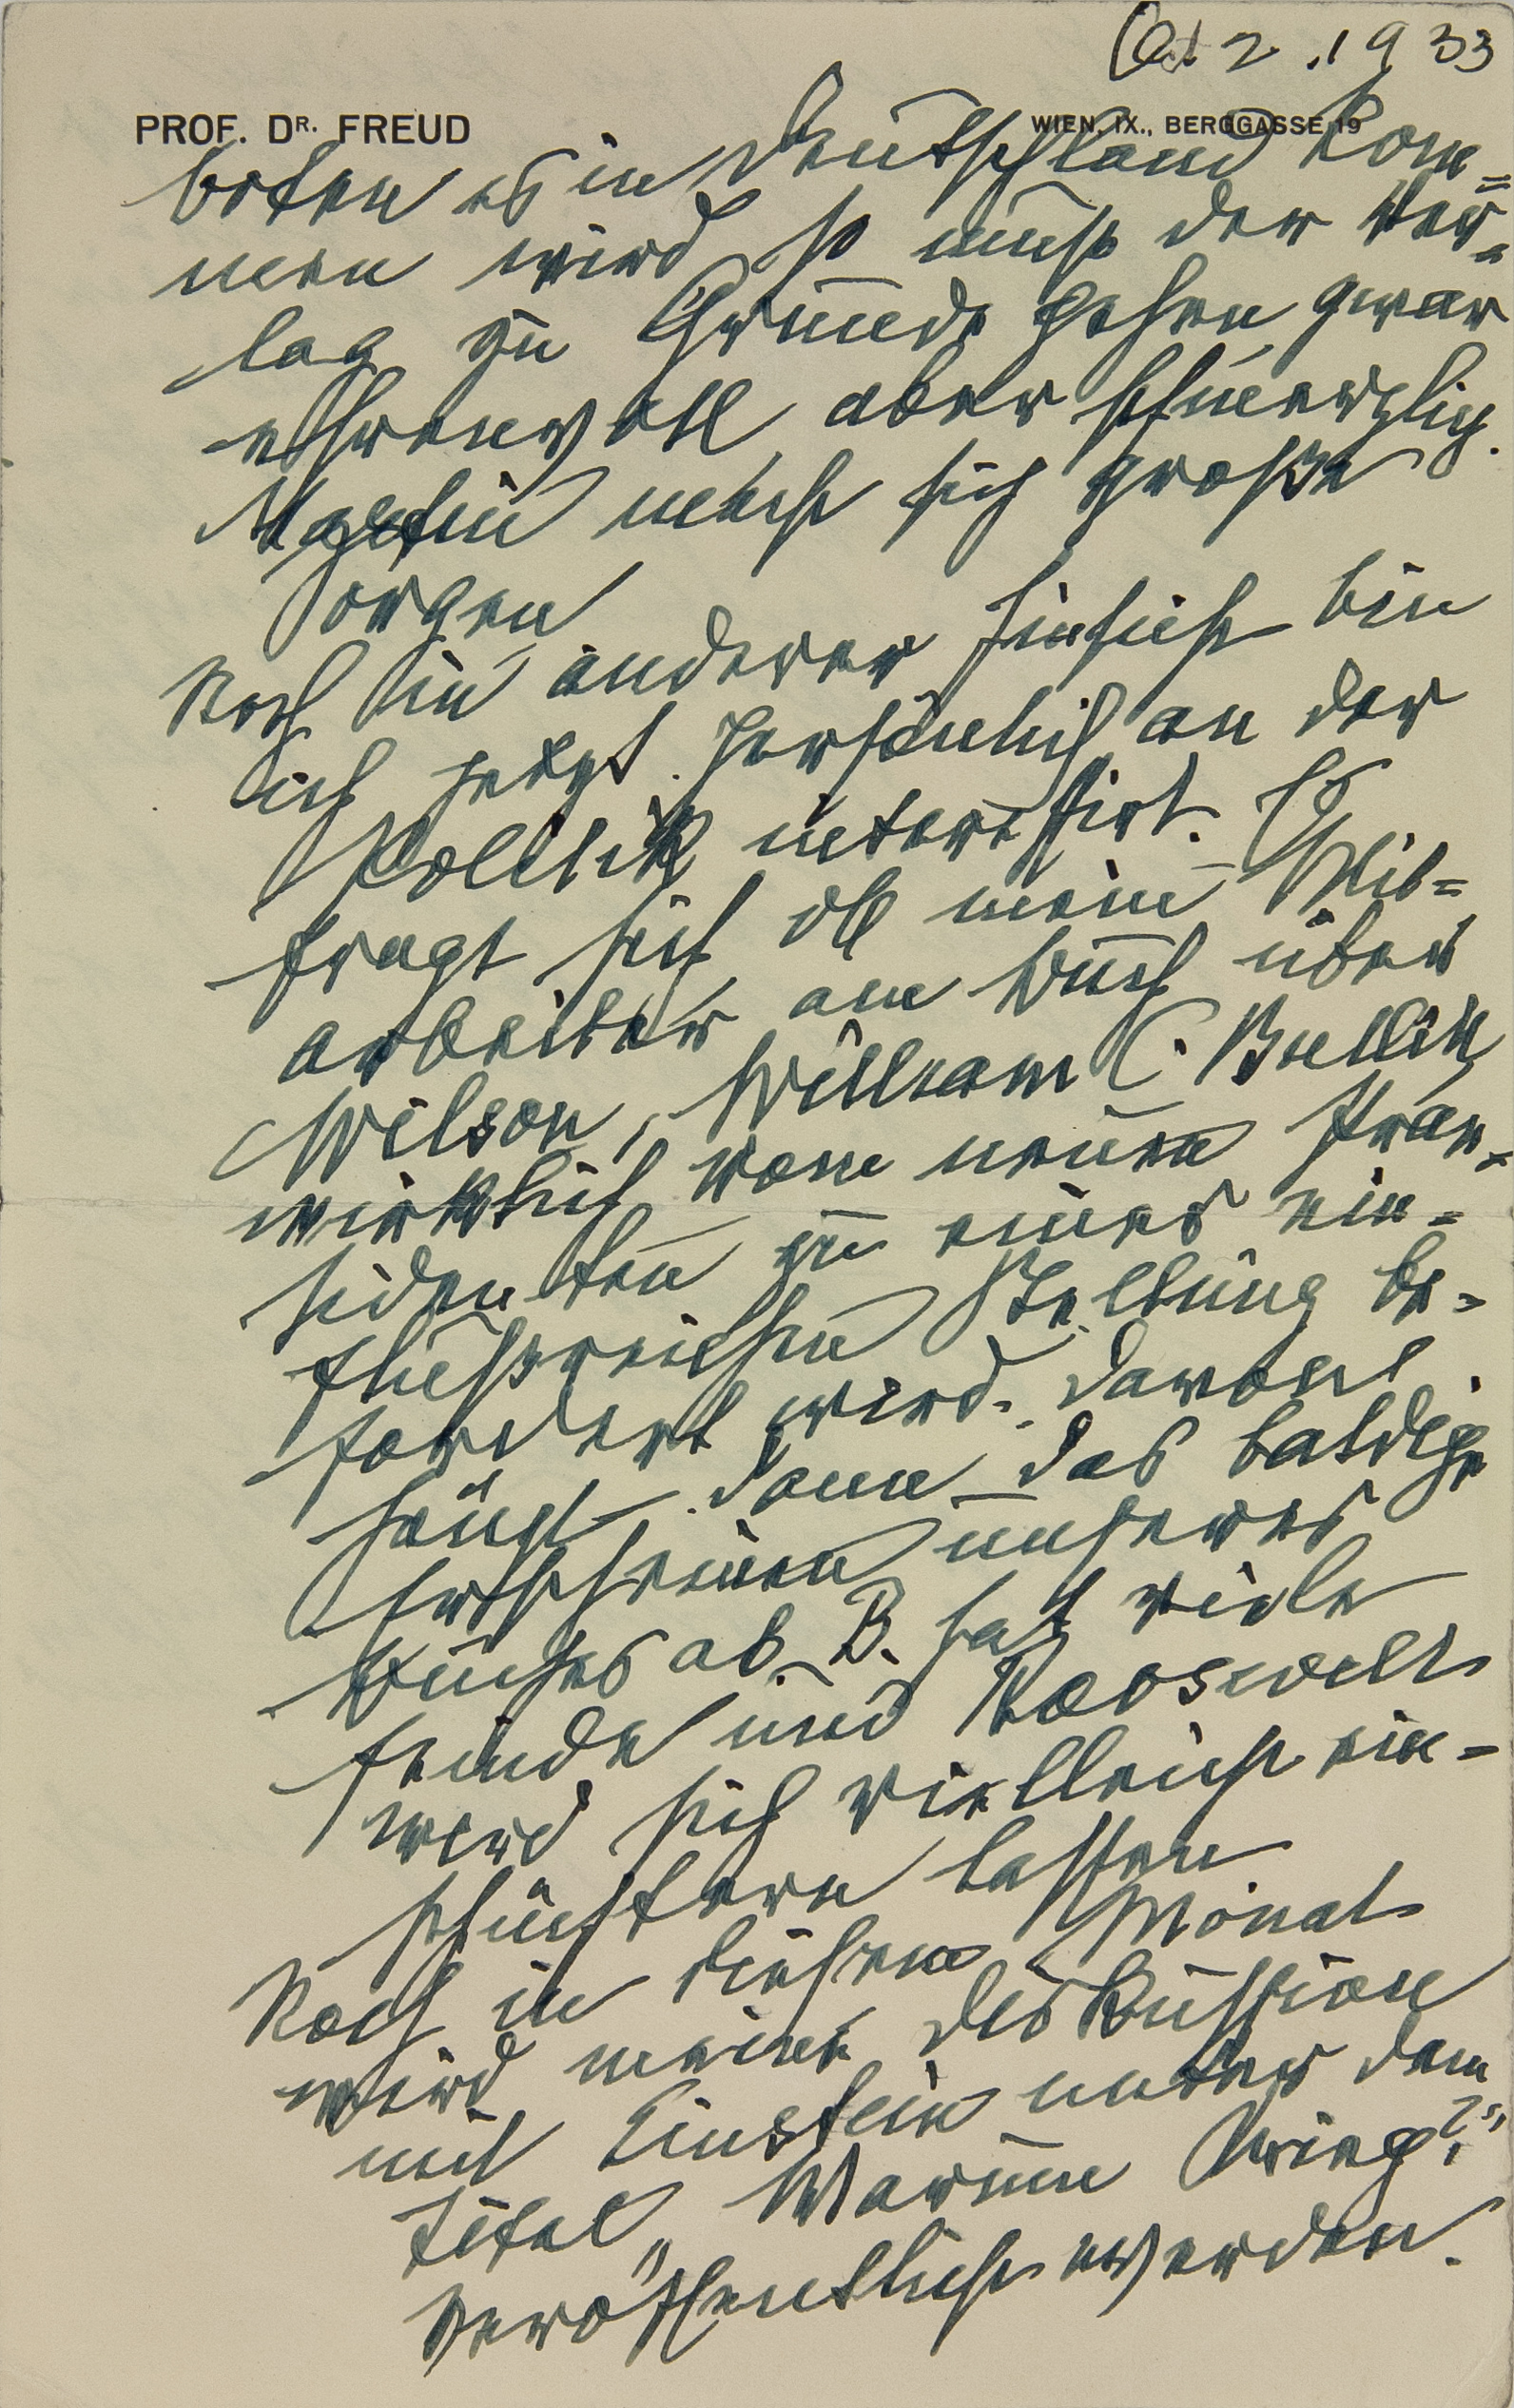 Oct 2. 1933
PROF. DR. FREUD
WIEN, IX., BERGGASSE 19
boten es in Deutschland kom=
men wird, so muß der Ver=
lag zu Grunde gehen, zwar
ehrenvoll, aber schmerzlich.
Martin macht sich große
Sorgen
Noch in anderer Hinsicht bin
ich jetzt persönlich an der
Politik interessirt. Es
fragt sich, ob mein Mit=
arbeiter am Buch über
Wilson, William C. Bullitt
wirklich vom neuen Prae=
sidenten zu einer ein=
flußreichen Stellung be=
fordert wird. Davon
hängt dann das baldige
Erscheinen unseres
Buches ab. B. hat viele
Feinde und Rooswelt
wird sich vielleicht ein=
schüchtern lassen
Noch in diesem Monat
wird meine Diskussion
mit Einstein unter dem
Titel „Warum Krieg?“
veröffentlicht werden.